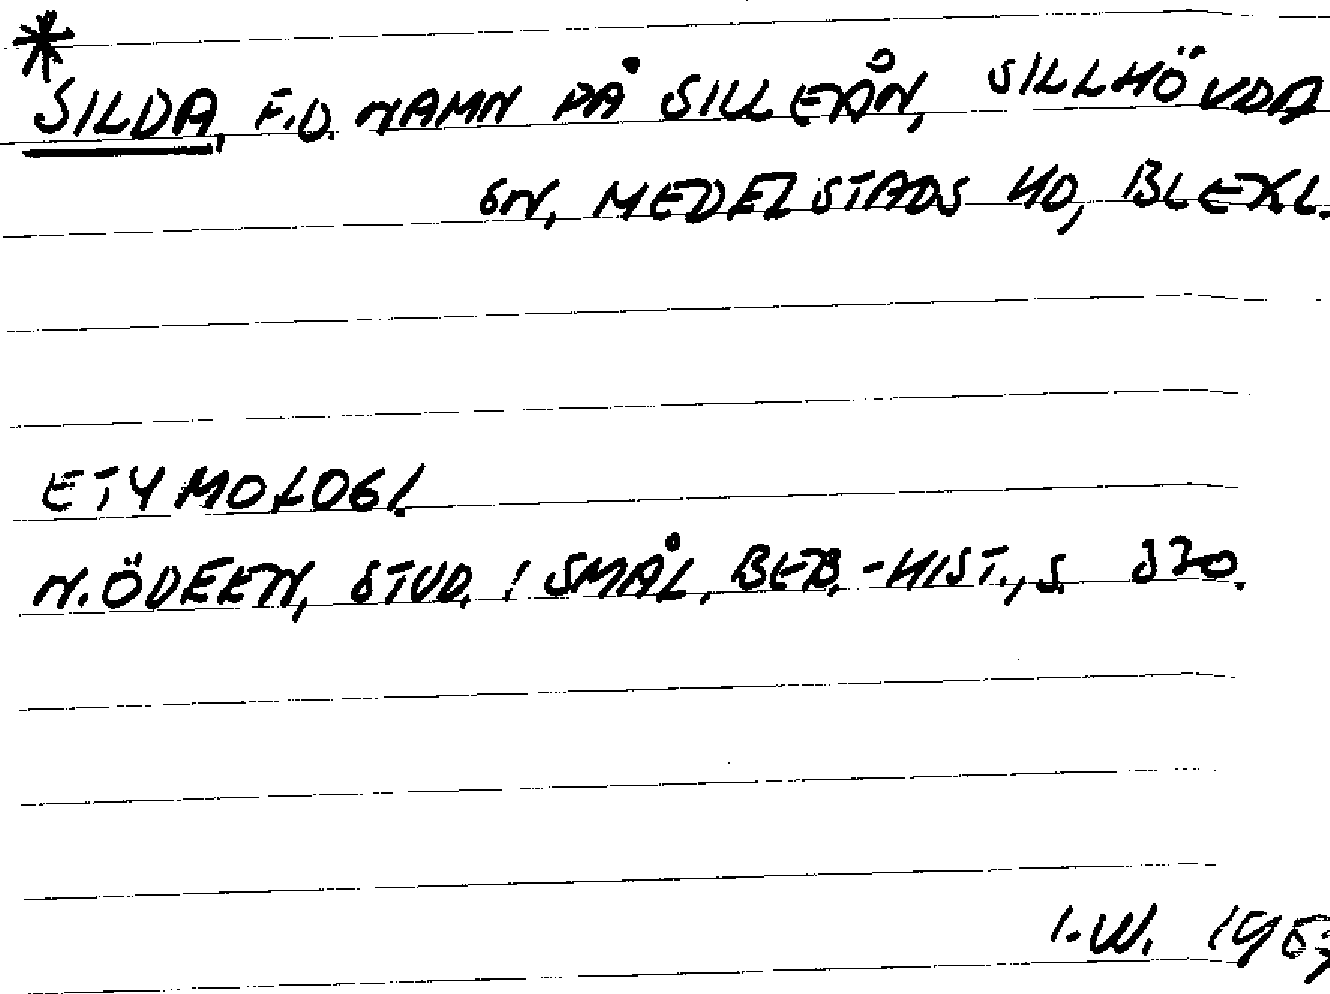 *
SILDA, F.D. NAMN PÅ SILLEÅN, SILLHÖVDA
SN, MEDELSTADS HD, BLEKL.
ETYMOLOGI.
N. ÖDEEN, STUD. I SMÅL. BEB.-HIST., S.
I.W.